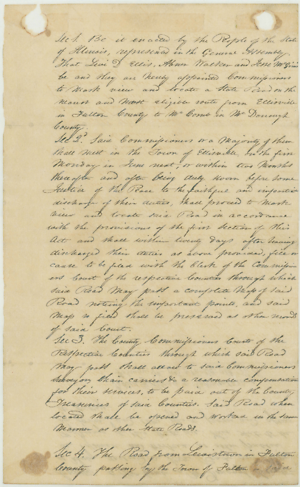 Sec 1. Be it enacted by the People of the State
of Illinois, represented in the General Assembly
That Levi D. Ellis, Adam Walter and Jesse
be and they are hereby appointed Commissioners
to mark view and locate a State Road on the
nearest and most eligible route from Ellisville
in Fulton County to McComb in McDonough
County
Sec 2d Said Commissioners or a Majority of them
shall meet in the Town of Ellisville, on the first
Monday in June next, or within Six Months
thereafter and after being duly sworn before some
Justice of the Peace to the faithful and impartial
discharge of their duties, shall proceed to mark
view and locate said Road in accordance
with the provisions of the first section of this
Act and shall within twenty days after having
discharged their duties as above provided, file or
cause to be filed with the Clerk of the Commissioners
Court of the respective Counties through which
said Road May pass a complete Map of said
Road noting the important points, and said
Map so filed shall be preserved as other records
of said Court.
Sec 3. The County Commissioners Courts of the
Respective Counties through which said Road
May pass shall allow to said Commissioners
Surveyor Chain carriers & a reasonable compensation
for their services, to be paid out of the County
Treasuries of said Counties Said Road when
located shall be opened and worked in the same
Manner as other State Roads.
Sec 4. The Road from Lewistown in Fulton
County passing by the Town of